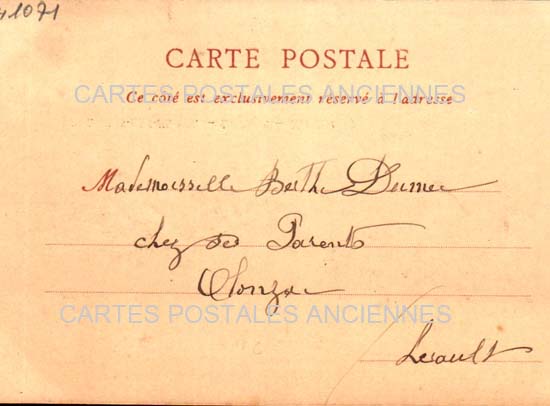 41071
CARTE POSTALE
CARTES POSTALES ANCIENNES
Ce côté est exclusivement réservé à l'adresse
Mademoisselle Berthe
chez ses Parents
Olonzac
CARTES POSTALES ANCIENNES
Herault